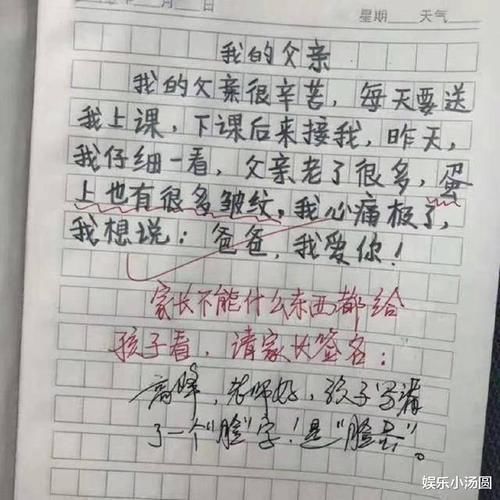 月 日 星期 天气
我的父亲
我的父亲很辛苦，每天要送
我上课，下课后来接我，昨天，
我仔细一看，父亲老了很多，蛋
上也有很多皱纹，我心痛极了，
我想说：爸爸，我爱你！
家长不能什么东西都给
孩子看，请家长签名：
高峰，老师好，孩子写漏
了一个"脸"字！是"脸蛋"。
娱乐小汤圆